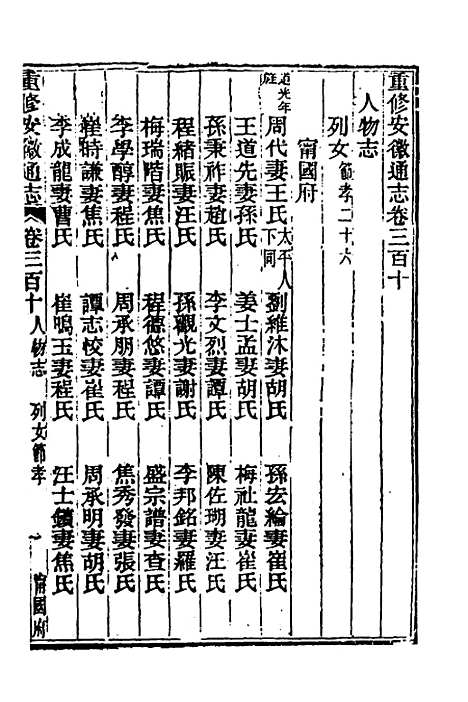 重修安徽通志卷三百十
人物志
列女節孝二十六
甯國府
道光年旌
周代妻王氏太平人下同 劉維沐妻胡氏 孫宏綸妻崔氏
王道先妻孫氏 姜士孟妻胡氏 梅社龍妻崔氏
孫秉祚妻趙氏 李文烈妻譚氏 陳佐瑚妻汪氏
程緒賑妻汪氏 孫觀光妻謝氏 李邦銘妻羅氏
梅瑞階妻焦氏 程德悠妻譚氏 盛宗譜妻查氏
李學醇妻程氏 周承朋妻程氏 焦秀發妻張氏
崔時謙妻焦氏 譚志恔妻崔氏 周承明妻胡氏
李成龍妻曹氏 崔鳴玉妻程氏 汪士鑽妻焦氏
重修安徽通志 卷三百十 人物志 列女節孝 一 甯國府